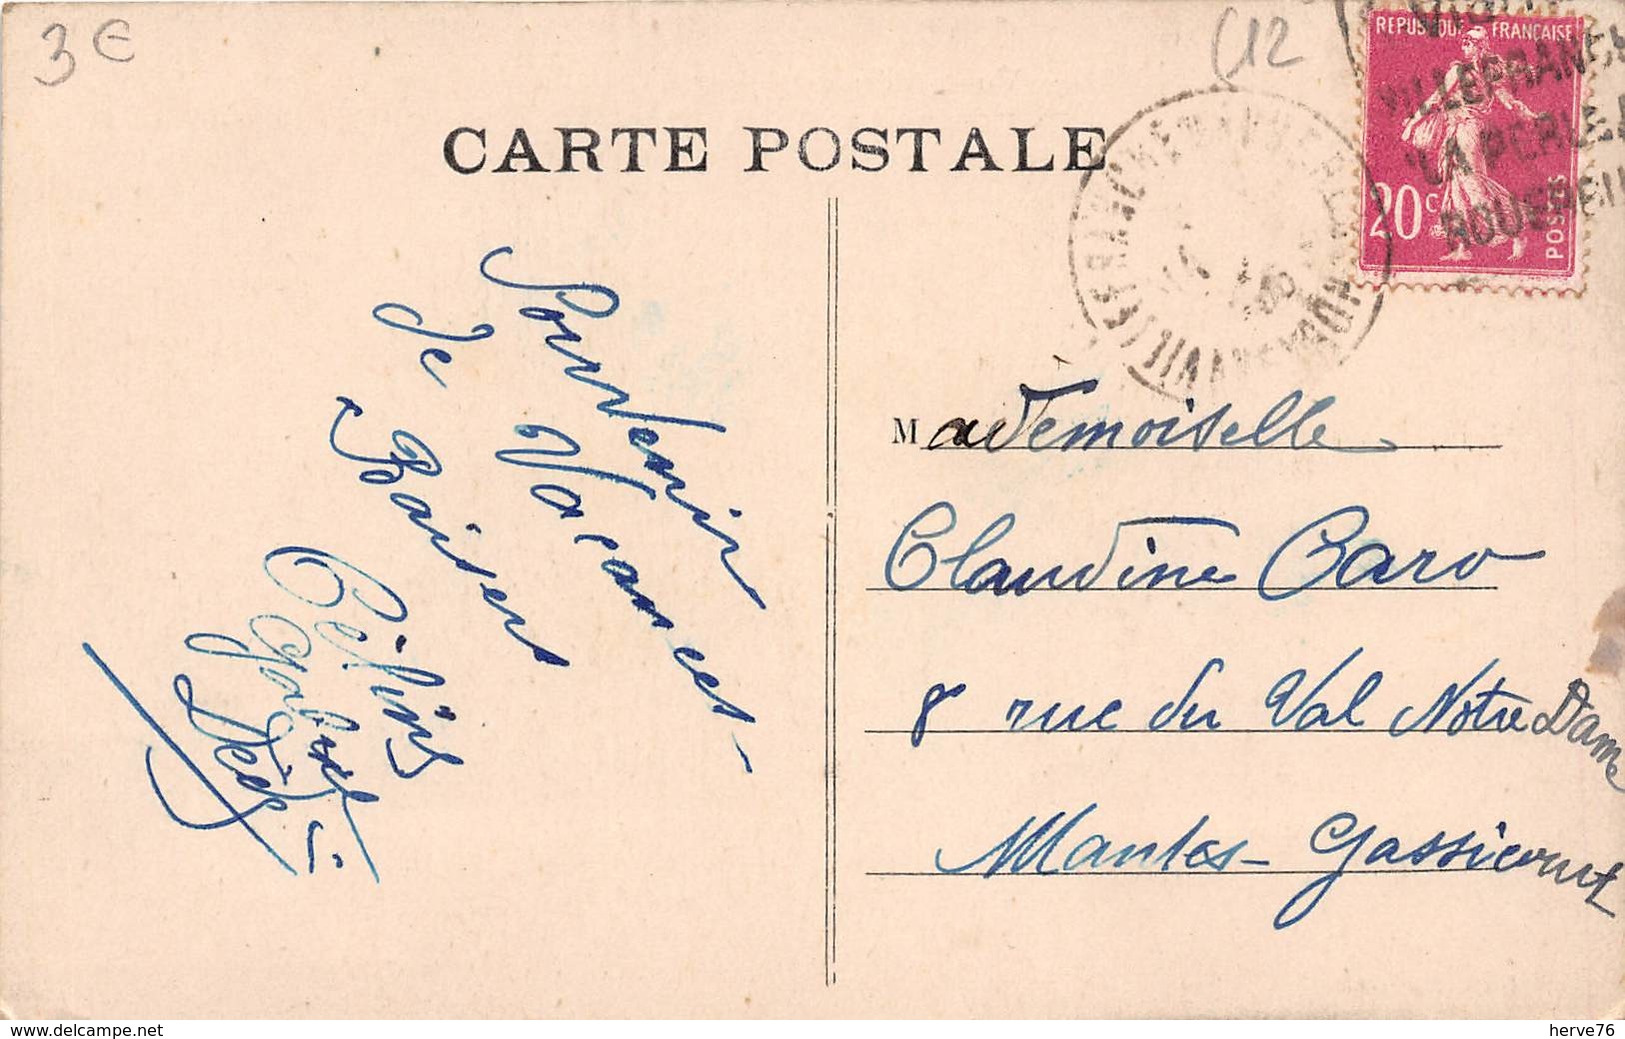 3 €
C12
CARTE POSTALE
REPUBLIQUE FRANÇAISE
20c
POSTES
VILLEFRANCHE
LA PERLE
Souvenir
de Vacances-
Baisers
Mademoiselle
Claudine Caro
8 rue du Val Notre Dame
Mantes-Gassicourt
www.delcampe.net
herve76